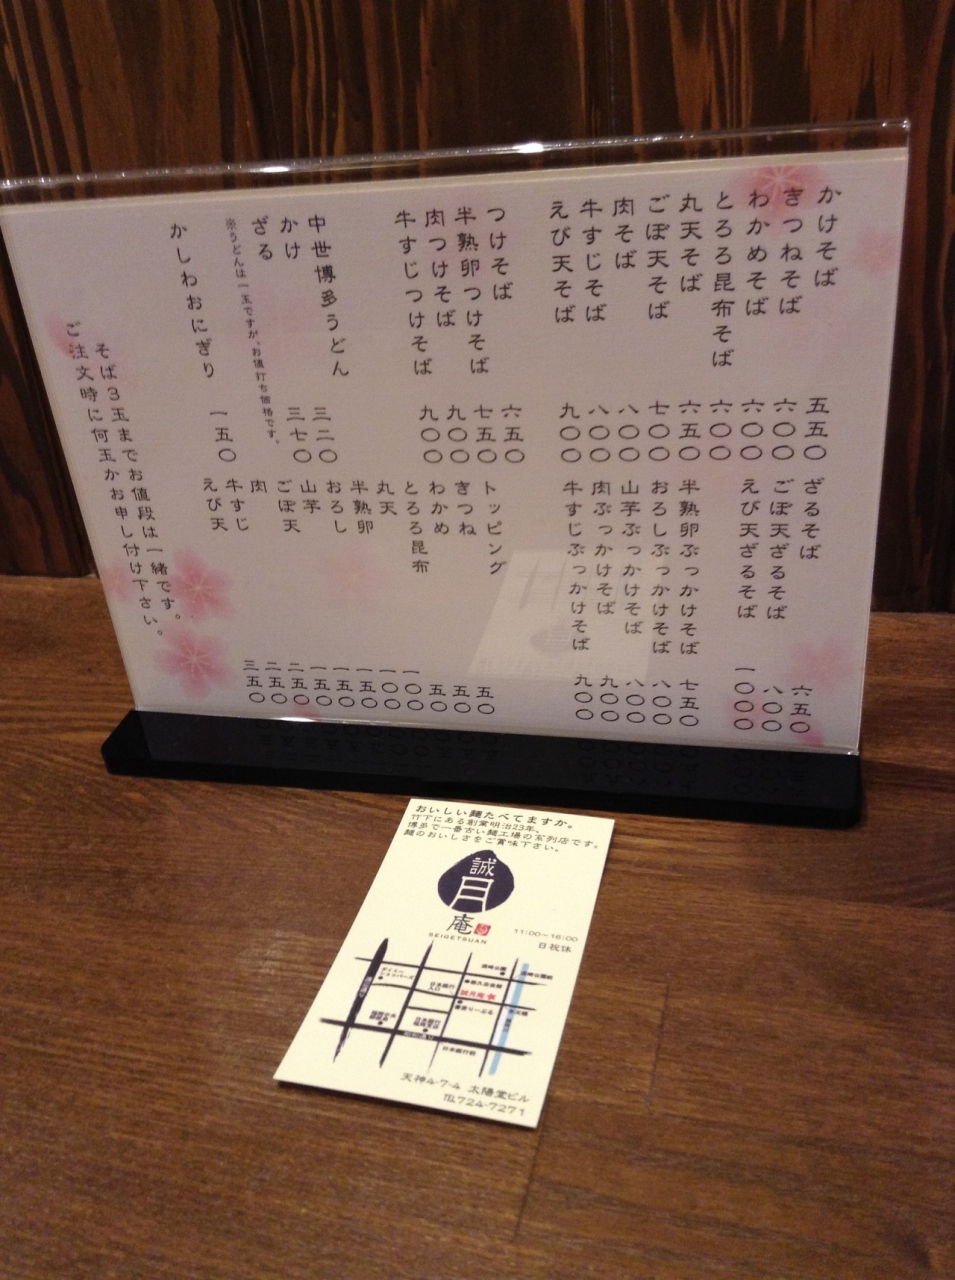 かけそば 五五〇
きつねそば 六〇〇
わかめそば 六〇〇
とろろ昆布そば 六〇〇
丸天そば 六五〇
ごぼ天そば 七〇〇
肉そば 八〇〇
牛すじそば 八〇〇
えび天そば 九〇〇
つけそば 六五〇
半熟卵つけそば 七五〇
肉つけそば 九〇〇
牛すじつけそば 九〇〇
中世博多うどん
かけ 三二〇
ざる 三七〇
※うどんは一玉ですが、お値打ち価格です。
かしわおにぎり 一五〇
ざるそば 六五〇
ごぼ天ざるそば 八〇〇
えび天ざるそば 一〇〇〇
半熟卵ぶっかけそば 七五〇
おろしぶっかけそば 八〇〇
山芋ぶっかけそば 八〇〇
肉ぶっかけそば 九〇〇
牛すじぶっかけそば 九〇〇
トッピング
きつね 五〇
わかめ 五〇
とろろ昆布 五〇
丸天 一〇〇
半熟卵 一〇〇
おろし 一五〇
山芋 一五〇
ごぼ天 一五〇
肉 二五〇
牛すじ 二五〇
えび天 三五〇
そば3玉までお値段は一緒です。
ご注文時に何玉かお申し付け下さい。
おいしい麺たべてますか。
竹下にある創業明治23年、
博多で一番古い麺工場の系列店です。
麺のおいしさをご賞味下さい。
誠月庵
SEIGETSUAN
11:00~16:00
日祝休
誠月庵
日本銀行
入口
昭和通り
日本銀行前
天神4-7-4 太陽堂ビル
℡724-7271